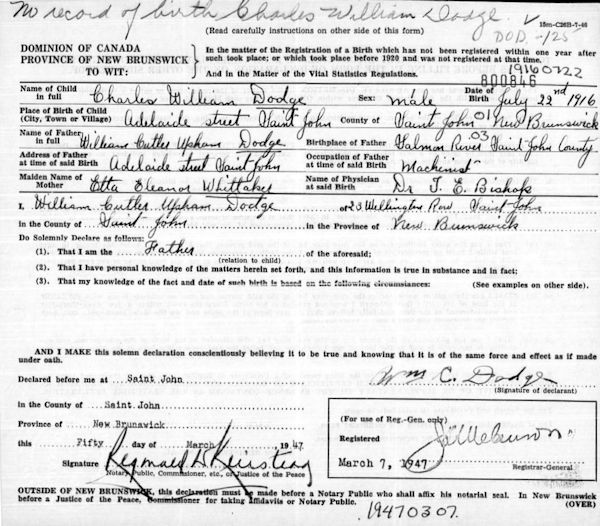 No record of birth Charles William Dodge. ✓
15m-C26B-7-46
(Read carefully instructions on other side of this form)
DOD-125
DOMINION OF CANADA
PROVINCE OF NEW BRUNSWICK
TO WIT:
In the matter of the Registration of a Birth which has not been registered within one year after
such took place; or which took place before 1920 and was not registered at that time.
And in the Matter of the Vital Statistics Regulations.
19160722
800846
Name of Child in full Charles William Dodge Sex: male Date of Birth July 22nd 1916
Place of Birth of Child (City, Town or Village) Adelaide street Saint John County of Saint John 01 New Brunswick
Name of Father in full William Cutler Upham Dodge Birthplace of Father Salmon River 03 Saint John County
Address of Father at time of said Birth Adelaide street Saint John Occupation of Father at time of said Birth Machinist
Maiden Name of Mother Etta Eleanor Whittaker Name of Physician at said Birth Dr T. E. Bishop
I, William Cutler Upham Dodge of 23 Wellington Row Saint John
in the County of Saint John in the Province of New Brunswick
Do Solemnly Declare as follows:
(1). That I am the Father of the aforesaid;
(relation to child)
(2). That I have personal knowledge of the matters herein set forth, and this information is true in substance and in fact;
(3). That my knowledge of the fact and date of such birth is based on the following circumstances: (See examples on other side).
AND I MAKE this solemn declaration conscientiously believing it to be true and knowing that it is of the same force and effect as if made
under oath.
Declared before me at Saint John
Wm C. Dodge
(Signature of declarant)
in the County of Saint John
Province of New Brunswick
this Fifty day of March 1947
Signature Reginald
Notary Public, Commissioner, etc., or Justice of the Peace
(For use of Reg.-Gen. only)
Registered
March 7, 1947
Registrar-General
OUTSIDE OF NEW BRUNSWICK, this declaration must be made before a Notary Public who shall affix his notarial seal. In New Brunswick
before a Justice of the Peace, Commissioner for taking Affidavits or Notary Public. (OVER)
19470307.